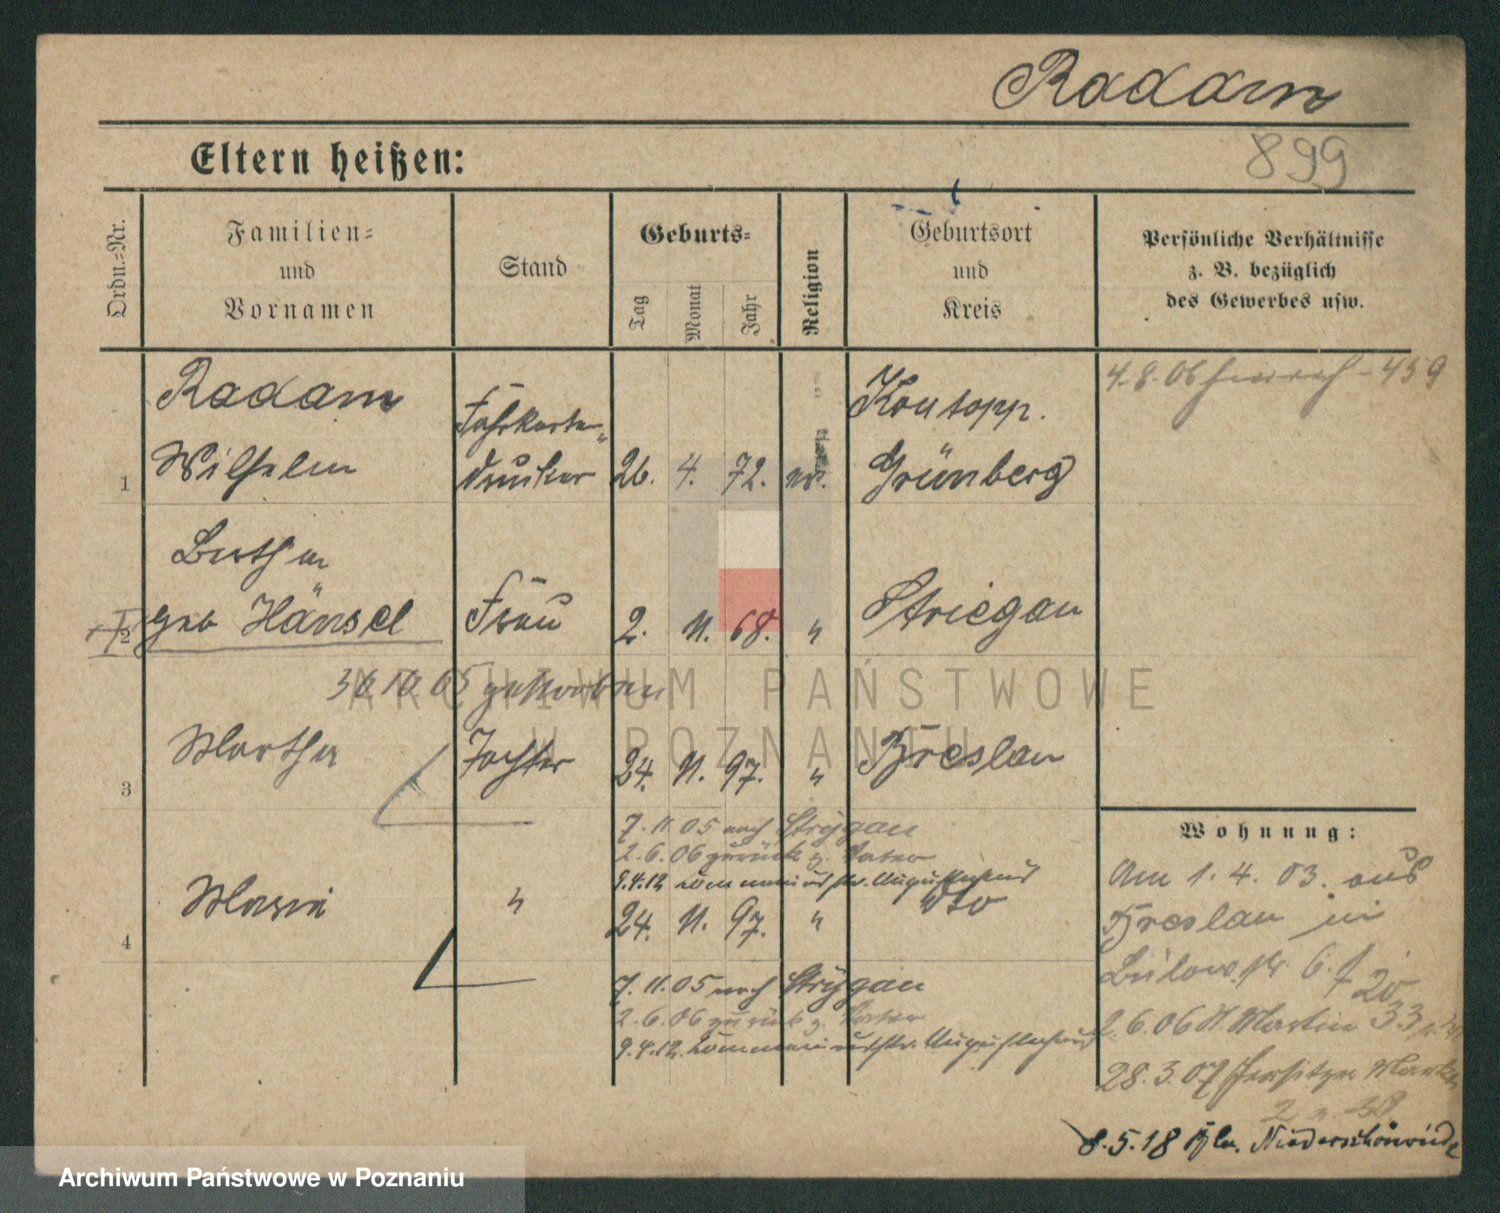 Radam
Eltern heißen:
899
Ordn.-Nr.
Familien-
und
Vornamen
Stand
Geburts-
Tag
Monat
Jahr
Religion
Geburtsort
und
Kreis
Persönliche Verhältnisse
z. B. bezüglich
des Gewerbes usw.
1
Radam
Wilhelm
Fahrkarten-
drucker
26. 4. 72.
Kontopp.
Grünberg
4.8.06 459
2
Bertha
geb Hänsel
Frau
2. 11. 68. "
Striegau
30.10.05 gestorben
3
Martha
Tochter
24. 11. 97. "
Breslau
7.11.05 nach Strigau
2.6.06 zurück z. Vater
9.4.12
4
Maria
"
24. 11. 97. "
dto
7.11.05 nach Strigau
2.6.06 zurück z. Vater
9.4.12.
Wohnung:
Am 1.4.03. aus
Breslau in
Bülowstr. 6.
2.6.06 St. Martin 33
28.3.07 Jersitzer Markt
8.5.18 Bln. Niederschönweide
ARCHIWUM PAŃSTWOWE
W POZNANIU
Archiwum Państwowe w Poznaniu